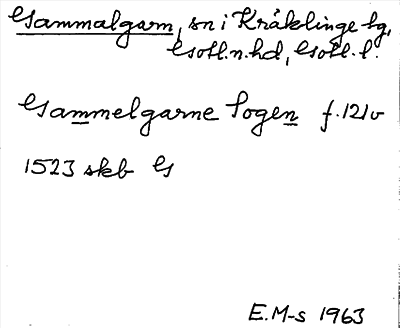 Gammalgarn, sn i Kräklinge tg,
Gotl. n. hd, Gotl. l.
Gammelgarne Sogen f. 121v
1523 skb G
E.M-s 1963